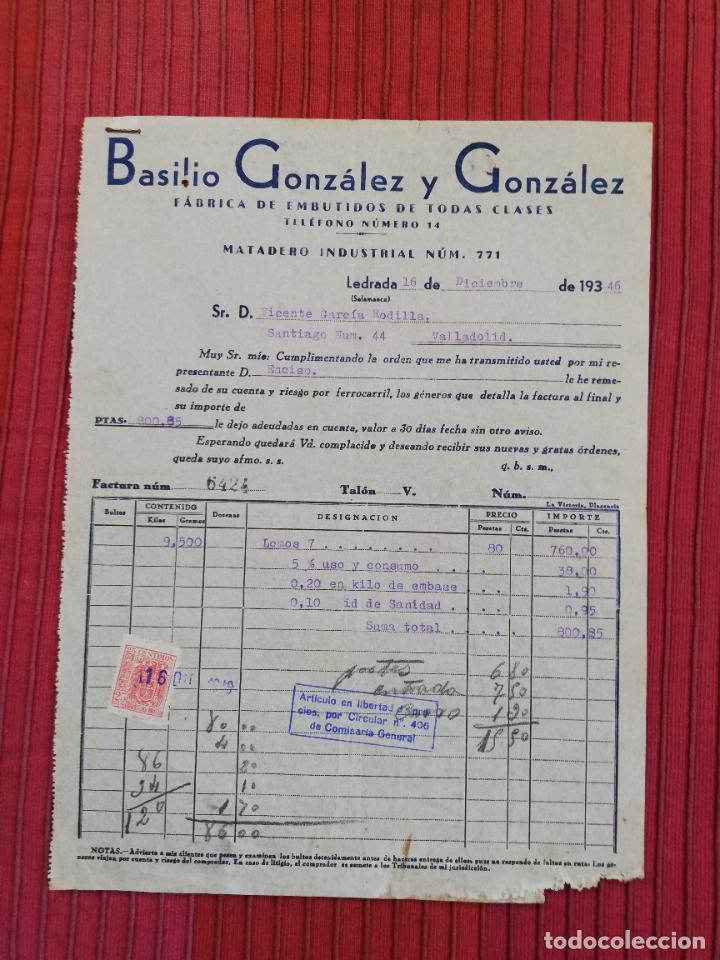 Basilio González y González
FÁBRICA DE EMBUTIDOS DE TODAS CLASES
TELÉFONO NÚMERO 14
MATADERO INDUSTRIAL NÚM. 771
Ledrada 16 de Diciembre de 193 46
(Salamanca)
Sr. D. Vicente García Rodilla,
Santiago Num. 44 Valladolid.
Muy Sr. mío: Cumplimentando la orden que me ha transmitido usted por mi re-
presentante D. Enciso. le he reme-
sado de su cuenta y riesgo por ferrocarril, los géneros que detalla la factura al final y
su importe de
PTAS. 800,85 le dejo adeudadas en cuenta, valor a 30 días fecha sin otro aviso.
Esperando quedará Vd. complacido y deseando recibir sus nuevas y gratas órdenes,
queda suyo afmo. s. s. q. b. s. m.,
Factura núm 6424 Talón V. Núm.
La Victoria, Plasencia
Bultos CONTENIDO Docenas DESIGNACION PRECIO IMPORTE
Kilos Gramos Pesetas Cts. Pesetas Cts.
9,500 Lomos 7 . . . . . . . . 80 760,00
5 % uso y consumo . . . . 38,00
0,20 en kilo de embase . . . 1,90
0,10 id de Sanidad . . . . 0,95
Suma total . . . . 800,85
CENTIMOS
16 DIC
portes 6 80
entrada 7 50
1 20
15 50
Artículo en libertad de pre-
cios, por Circular n.º 406
de Comisaría General
80 00
4 00
86 20
34 10
120 1 70
86 00
NOTAS.—Advierto a mis clientes que pesen y examinen los bultos detenidamente antes de hacerse entrega de ellos, pues no respondo de faltas en ruta. Los gé-
neros viajan por cuenta y riesgo del comprador. En caso de litigio, el comprador se somete a los Tribunales de mi jurisdicción.
todocoleccion
todocoleccion.net